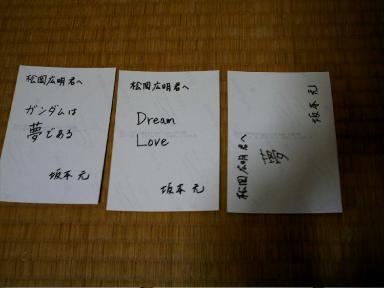 松岡広明君へ
ガンダムは
夢である
坂本 元
松岡広明君へ
Dream
Love
坂本 元
松岡広明君へ
夢
坂本 元